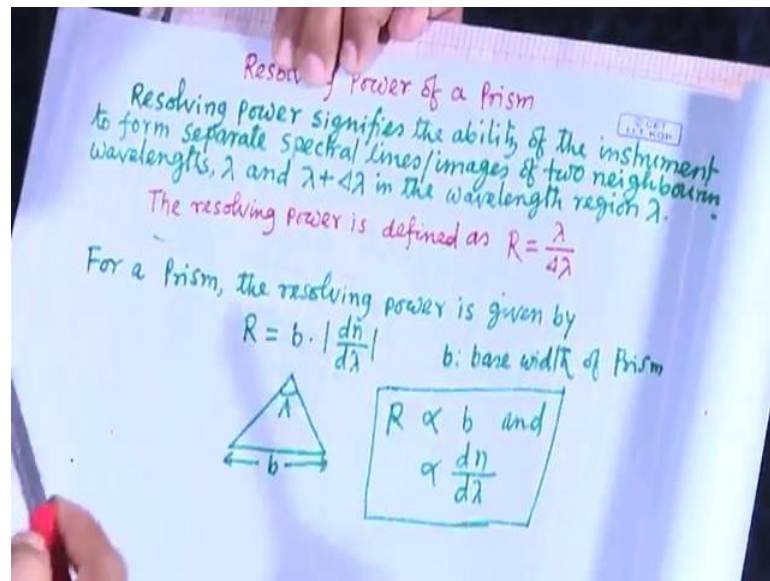 Power of a Prism
Resolving power signifies the ability of the instrument
to form separate spectral lines/images of two neighbourin
wavelengths, λ and λ+Δλ in the wavelength region λ.
The resolving power is defined as R = λ/Δλ
For a Prism, the resolving power is given by
R = b·|dn/dλ|
b: base width of Prism
A
b
R ∝ b and
∝ dn/dλ